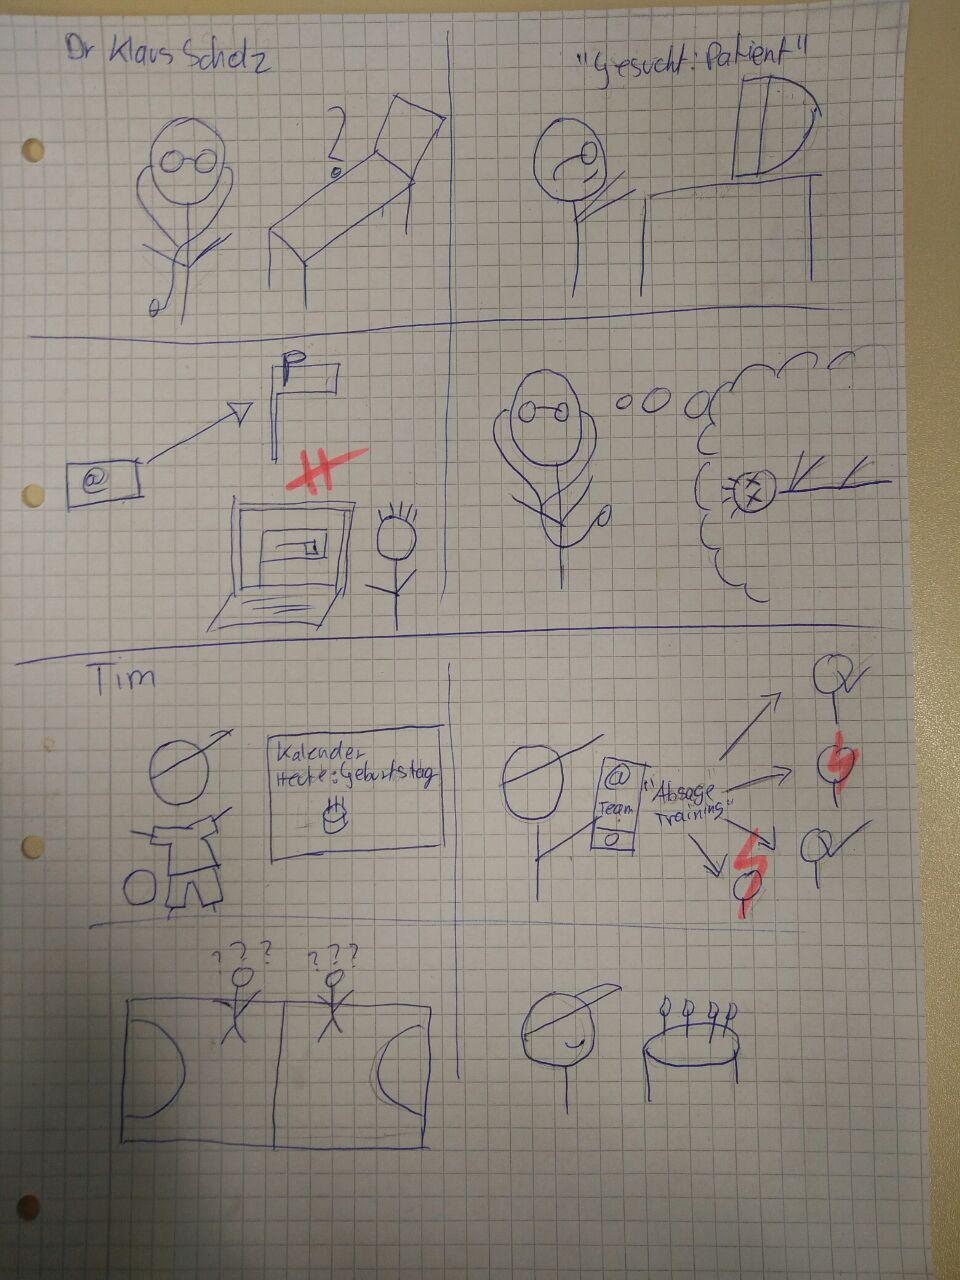 Dr Klaus Scholz
"Gesucht: Patient"
?
P
@
Tim
Kalender
Heute: Geburtstag
@
Team
"Absage
Training"
? ? ?
? ? ?